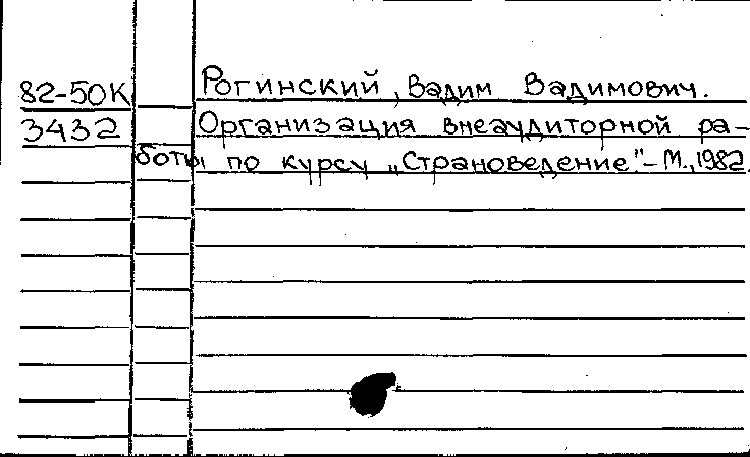 82-50К Рогинский, Вадим Вадимович.
3432 Организация внеаудиторной ра-
боты по курсу „Страноведение".-М.,1982.